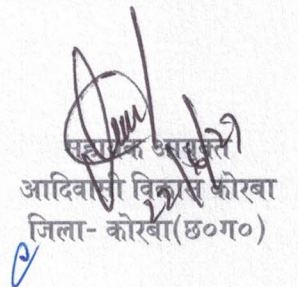 सहायक आयुक्त
आदिवासी विकास कोरबा
जिला- कोरबा(छ०ग०)